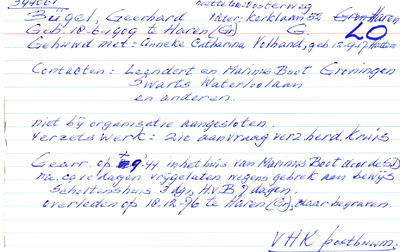 Bügel, Geerhard later: Kerklaan 52 Haren
Geb: 18-6-1909 te Haren (Gr) G. LO
Gehuwd met: Anneke Catharina Volband, geb. 12-9-17
Contacten: Leendert en Marinus Boot Groningen
Swarts Waterloolaan
en anderen.
niet bij organisatie aangesloten.
Verzetswerk: zie aanvraag verz. herd. kruis
Gearr. op 9'44 in het huis van Marinus Boot door de SD
na ca 10 dagen vrijgelaten wegens gebrek aan bewijs
Scholtenshuis 3 dg, H.v.B 7 dagen.
overleden op 18.12.'76 te Haren (Gr), daar begraven.
VHK posthuum.